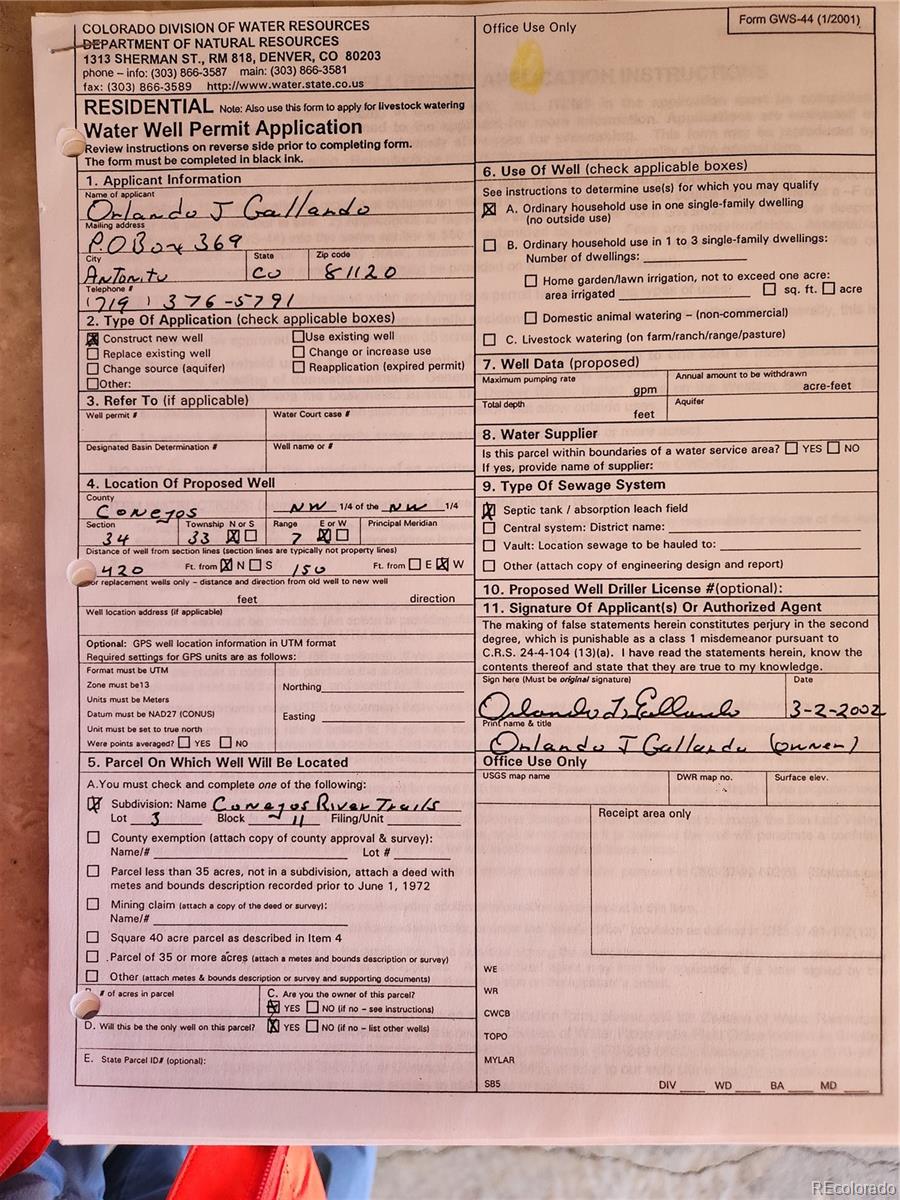 COLORADO DIVISION OF WATER RESOURCES
DEPARTMENT OF NATURAL RESOURCES
1313 SHERMAN ST., RM 818, DENVER, CO 80203
phone – info: (303) 866-3587 main: (303) 866-3581
fax: (303) 866-3589 http://www.water.state.co.us
RESIDENTIAL Note: Also use this form to apply for livestock watering
Water Well Permit Application
Review instructions on reverse side prior to completing form.
The form must be completed in black ink.
1. Applicant Information
Name of applicant
Orlando J Gallando
Mailing address
P.O Box 369
City State Zip code
Antonito CO 81120
Telephone #
(719) 376-5791
2. Type Of Application (check applicable boxes)
Construct new well Use existing well
Replace existing well Change or increase use
Change source (aquifer) Reapplication (expired permit)
Other:
3. Refer To (if applicable)
Well permit # Water Court case #
Designated Basin Determination # Well name or #
4. Location Of Proposed Well
County
Conejos NW 1/4 of the NW 1/4
Section Township N or S Range E or W Principal Meridian
34 33 7
Distance of well from section lines (section lines are typically not property lines)
420 Ft. from N S 150 Ft. from E W
For replacement wells only – distance and direction from old well to new well
feet direction
Well location address (if applicable)
Optional: GPS well location information in UTM format
Required settings for GPS units are as follows:
Format must be UTM
Zone must be13
Units must be Meters
Datum must be NAD27 (CONUS)
Unit must be set to true north
Were points averaged? YES NO
Northing
Easting
5. Parcel On Which Well Will Be Located
A.You must check and complete one of the following:
Subdivision: Name Conejos River Trails
Lot 3 Block 11 Filing/Unit
County exemption (attach copy of county approval & survey):
Name/# Lot #
Parcel less than 35 acres, not in a subdivision, attach a deed with
metes and bounds description recorded prior to June 1, 1972
Mining claim (attach a copy of the deed or survey):
Name/#
Square 40 acre parcel as described in Item 4
Parcel of 35 or more acres (attach a metes and bounds description or survey)
Other (attach metes & bounds description or survey and supporting documents)
# of acres in parcel C. Are you the owner of this parcel?
YES NO (if no – see instructions)
D. Will this be the only well on this parcel? YES NO (if no – list other wells)
E. State Parcel ID# (optional):
Office Use Only Form GWS-44 (1/2001)
6. Use Of Well (check applicable boxes)
See instructions to determine use(s) for which you may qualify
A. Ordinary household use in one single-family dwelling
(no outside use)
B. Ordinary household use in 1 to 3 single-family dwellings:
Number of dwellings:
Home garden/lawn irrigation, not to exceed one acre:
area irrigated sq. ft. acre
Domestic animal watering – (non-commercial)
C. Livestock watering (on farm/ranch/range/pasture)
7. Well Data (proposed)
Maximum pumping rate Annual amount to be withdrawn
gpm acre-feet
Total depth Aquifer
feet
8. Water Supplier
Is this parcel within boundaries of a water service area? YES NO
If yes, provide name of supplier:
9. Type Of Sewage System
Septic tank / absorption leach field
Central system: District name:
Vault: Location sewage to be hauled to:
Other (attach copy of engineering design and report)
10. Proposed Well Driller License #(optional):
11. Signature Of Applicant(s) Or Authorized Agent
The making of false statements herein constitutes perjury in the second
degree, which is punishable as a class 1 misdemeanor pursuant to
C.R.S. 24-4-104 (13)(a). I have read the statements herein, know the
contents thereof and state that they are true to my knowledge.
Sign here (Must be original signature) Date
Orlando J. Gallando 3-2-2002
Print name & title
Orlando J Gallando (owner)
Office Use Only
USGS map name DWR map no. Surface elev.
Receipt area only
WE
WR
CWCB
TOPO
MYLAR
SB5 DIV WD BA MD
REcolorado